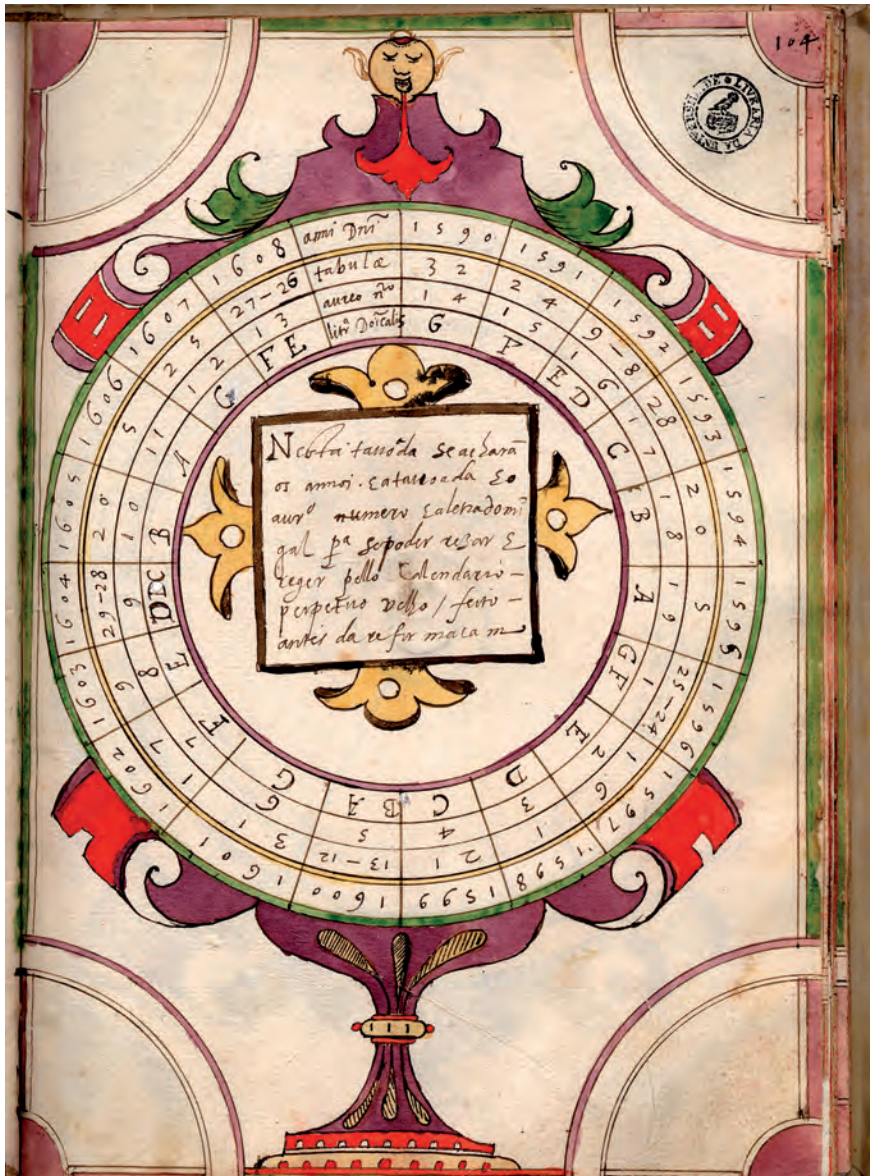 104
LIVRARIA DA UNIVERSIDADE
anni Dnĩ 1590 1591 1592 1593 1594 1595 1596 1597 1598 1599 1600 1601 1602 1603 1604 1605 1606 1607 1608
tabulæ 32 24 9-8 28 20 5 25-24 16 1 21 13-12 3 17 9 29-28 20 5 25 27-26
aureo nº 14 15 16 17 18 19 1 2 3 4 5 6 7 8 9 10 11 12 13
litrª Doĩcalis G F ED C B A GF E D C BA G F E DC B A G FE
Nesta tauoada se acharã
os annos. E a tauoada E o
aurº numero E a letra domĩ
gal pª se poder rezar E
reger pello Calendario-
perpetuo velho / feito-
antes da reformaçam